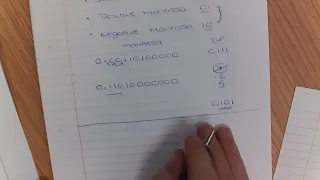 • Positive mantissa 01
• Negative mantissa 10
mantissa
0.00110100000 0111
7
2
5
0.11010000000
0101